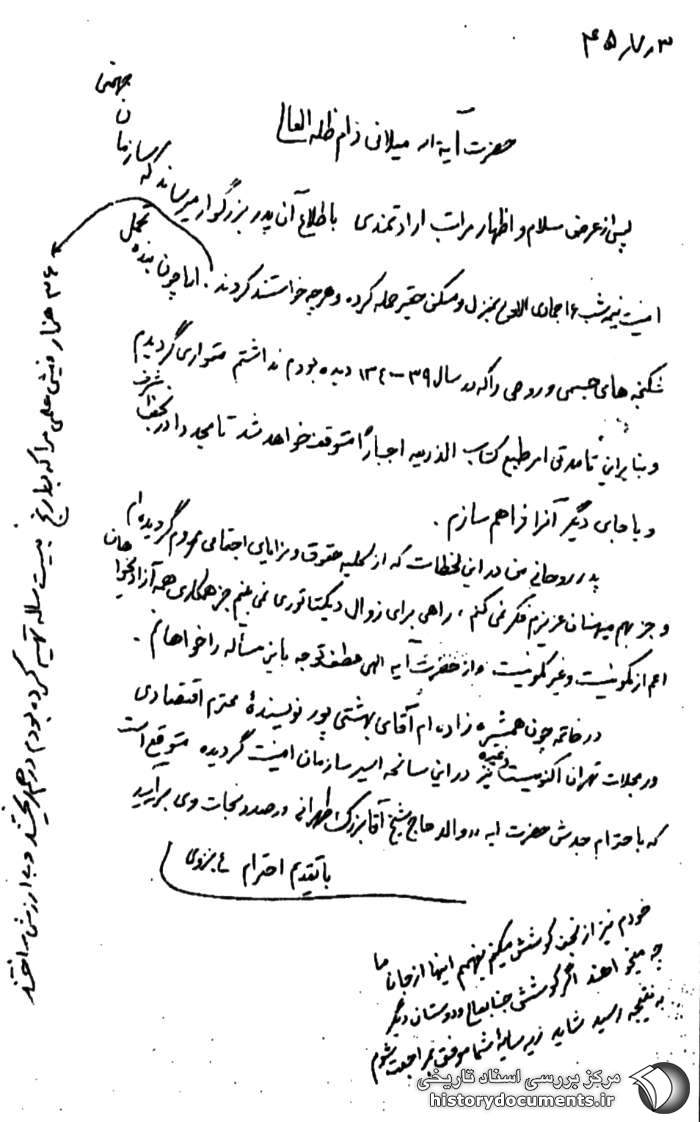 ۴۵/۷/۳
حضرت آیة اله میلانی دام ظله العالی
پس از عرض سلام و اظهار مراتب ارادتمندی باطلاع آن پدر بزرگوار میرساند که سازمان جهنمی
امنیت نیمه شب ۱۶ جمادی الاولی بمنزل و مسکن حقیر حمله کرده و هرچه خواستند کردند. اما چون بنده تحمل
شکنجه های جسمی و روحی را که در سال ۳۹-۱۳۴۰ دیده بودم نداشتم متواری گردیدم
و بنا براین تا مدتی امر طبع کتاب الذریعه اجباراً متوقف خواهد شد تا مجددا در نجف اشرف
و یا جای دیگر آنرا فراهم سازم.
پدر روحانی من در این لحظات که از کلیه حقوق و مزایای اجتماعی محروم گردیده ام
و جز بهم میهنان عزیزم فکر نمی کنم، راهی برای زوال دیکتاتوری نمی بینم جز همکاری همه آزادیخواهان
اعم از کمونیست و غیر کمونیست و از حضرت آیه الهی عطف توجه باین مسأله را خواهانم.
در خاتمه چون همشیره زاده ام آقای بهشتی پور نویسندهٔ محترم اقتصادی
در مجلات تهران اکنومیست و غیره نیز در این سانحه اسیر سازمان امنیت گردیده متوقع است
که باحترام جدش حضرت آیه اله والد حاج شیخ آقا بزرگ طهرانی درصدد نجات وی برآیید
با تقدیم احترام ع منزوی
خودم نیز از نجف کوشش میکنم بفهمم اینها از جان ما
چه میخواهند اگر کوشش جنابعالی و دوستان دیگر
به نتیجه رسید شاید زیر سایهٔ شما موفق بمراجعت شوم
۳۶ هزار فیش علمی مرا که بطارخ بیست ساله تهیه کرده بودم درهم ریختند و بی ارزش ساختند
مرکز بررسی اسناد تاریخی
historydocuments.ir